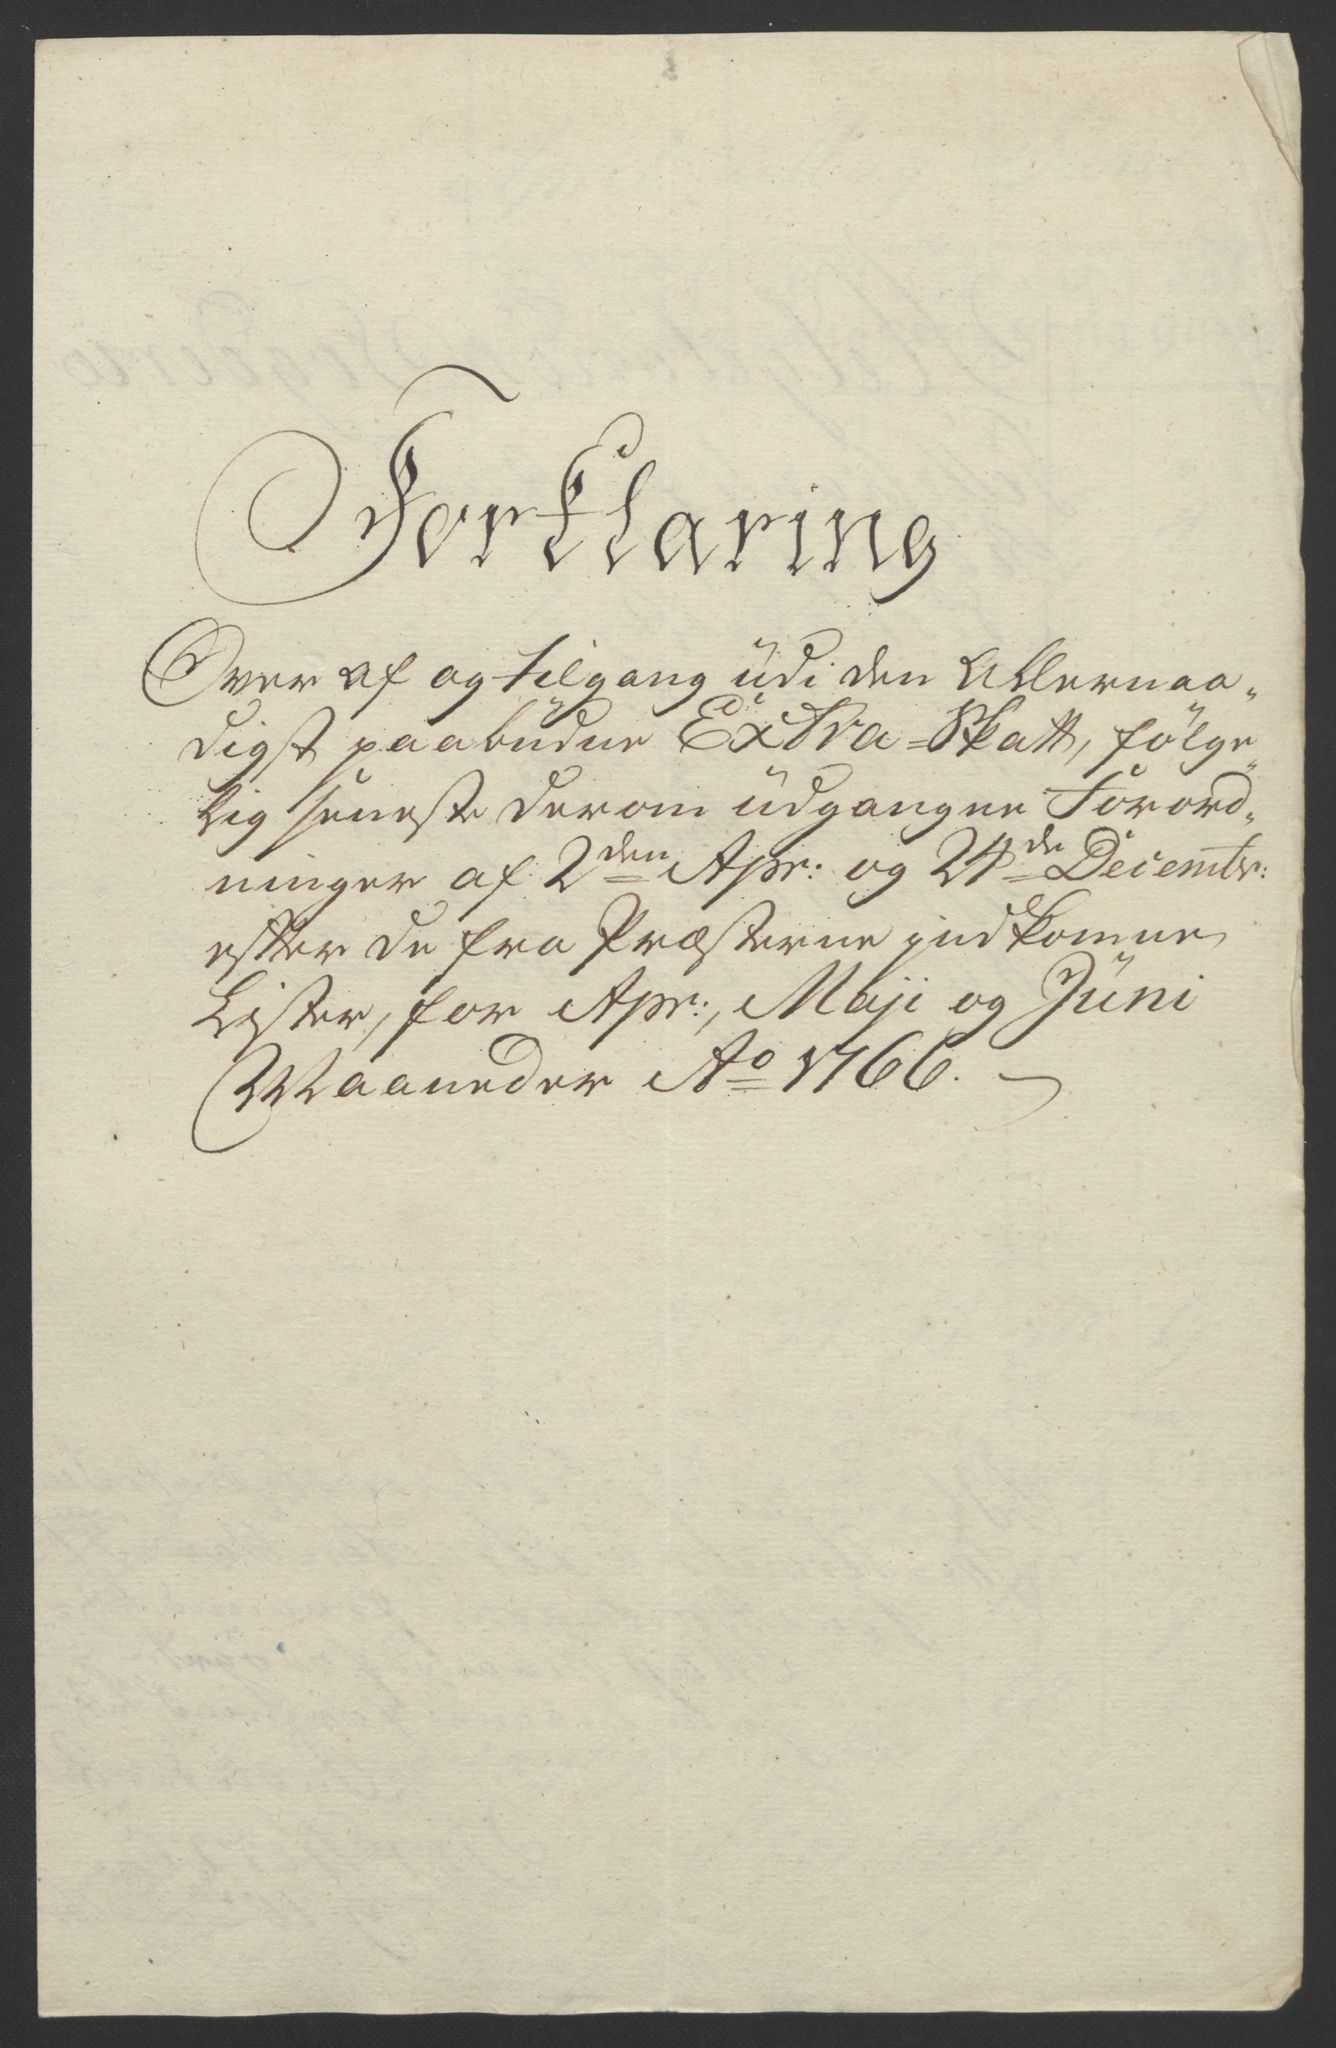 Forklaring
Over af og tilgang üdi den Allernaa-
digst paabüdne Extra-Skatt, følge-
lig seneste derom üdgangne Forord-
ninger af 2den Apr: og 24de Decembr:
efter de fra Præsterne indkomne
Lister, for Apr:, Maji og Jüni
Maaneder Ao 1766.